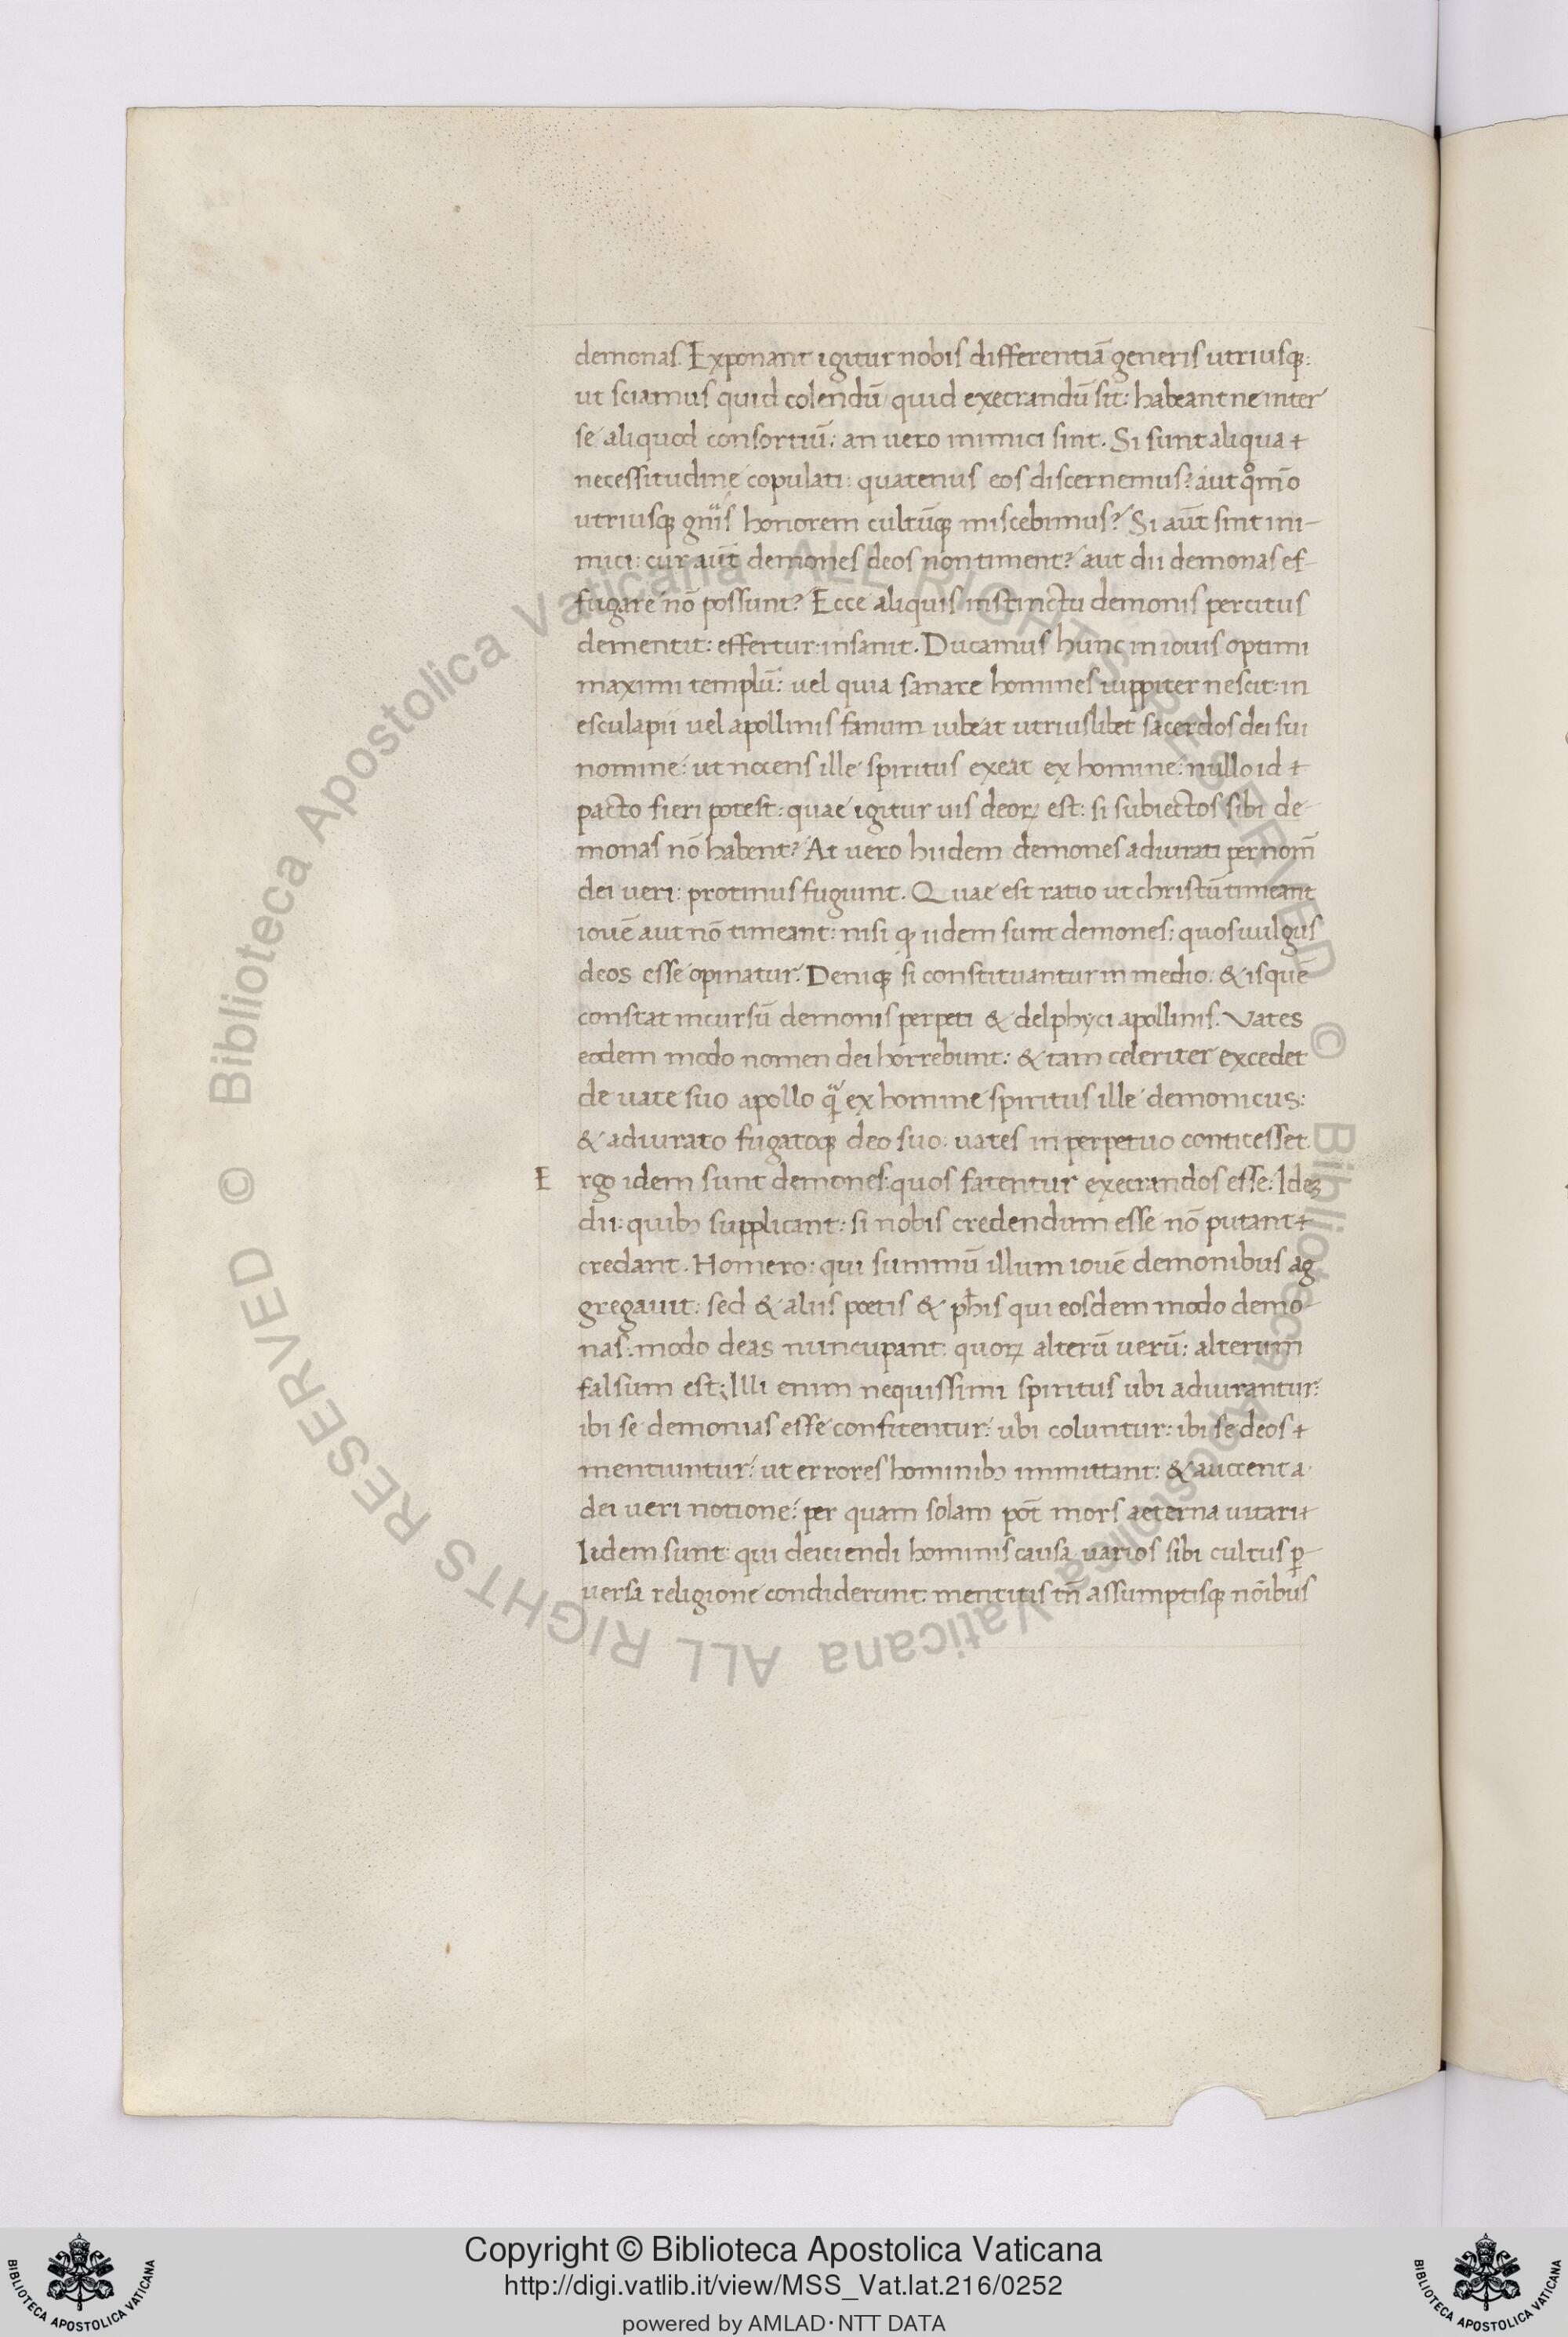 demonas. Exponant igitur nobis differentiā generis utriusq:
ut sciamus quid colendū quid execrandū sit: habeantne inter
se aliquod consortiū: an uero inimici sint. Si sunt aliqua +
necessitudine copulati: quatenus eos discernemus? aut qōmō
utriusq gnis honorem cultūq miscebimus? Si aūt sint ini-
mici: cur aūt demones deos non timent? aut dii demonas ef-
fugare nō possunt? Ecce aliquis instinctu demonis percitus
dementit: effertur: insanit. Ducamus hunc in iouis optimi
maximi templū: uel quia sanare homines iuppiter nescit: in
esculapii uel apollinis fanum iubeat utriuslibet sacerdos dei sui
nomine: ut nocens ille spiritus exeat ex homine: nullo id +
pacto fieri potest: quae igitur uis deoꝝ est: si subiectos sibi de-
monas nō habent? At uero hiidem demones adiurati per nom̄
dei ueri: protinus fugiunt. Quae est ratio ut christū timeant
iouē aut nō timeant: nisi q iidem sunt demones: quos uulgus
deos esse opinatur. Deniq si constituantur in medio. & is quē
constat incursū demonis perpeti & delphyci apollinis. Vates
eodem modo nomen dei horrebunt: & tam celeriter excedet
de uate suo apollo q̄ ex homine spiritus ille demonicus:
& adiurato fugatoq deo suo: uates in perpetuo conticesset
E rgo idem sunt demones: quos fatentur execrandos esse: Idez
dii: quibꝰ supplicant: si nobis credendum esse nō putant +
credant. Homero: qui summū illum iouē demonibus ag
gregauit: sed & aliis poetis & phis qui eosdem modo demo-
nas: modo deas nuncupant: quoꝝ alterū uerū: alterum
falsum est: Illi enim nequissimi spiritus ubi adiurantur:
ibi se demonias esse confitentur: ubi coluntur: ibi se deos +
mentiuntur: ut errores hominibꝰ immittant: & auocent a
dei ueri notione: per quam solam pōt mors aeterna uitari +
Iidem sunt: qui deiciendi hominis causa uarios sibi cultus ꝑ-
uersa religione condiderunt: mentitis tn̄ assumptisq nōibus
Copyright © Biblioteca Apostolica Vaticana
http://digi.vatlib.it/view/MSS_Vat.lat.216/0252
powered by AMLAD·NTT DATA
BIBLIOTECA APOSTOLICA VATICANA
BIBLIOTECA APOSTOLICA VATICANA
© Biblioteca Apostolica Vaticana ALL RIGHTS RESERVED
© Biblioteca Apostolica Vaticana ALL RIGHTS RESERVED